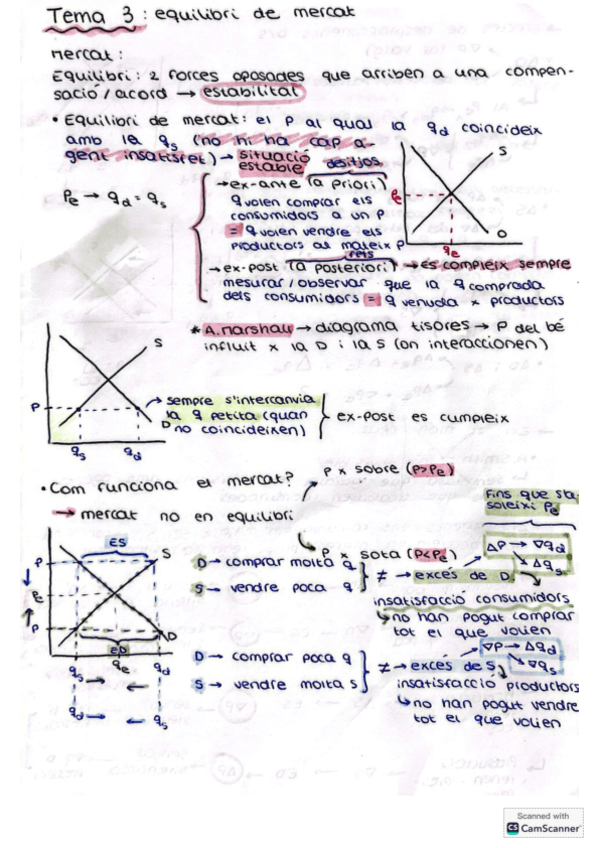 Tema 3: equilibri de mercat
mercat:
Equilibri: 2 forces oposades que arriben a una compen-
sació/acord → estabilitat
• Equilibri de mercat: el P al qual la qd coincideix
amb la qs (no hi ha cap a-
gent insatisfet) → situació
estable
desitjos
Pe → qd = qs
→ ex-ante (a priori)
q volen comprar els
consumidors a un P
= q volen vendre els
productors al mateix P
fets
→ ex-post (a posteriori) → es compleix sempre
mesurar/observar que la q comprada
dels consumidors = q venuda x productors
S
Pe
D
qe
* A. Marshall → diagrama tisores → P del bé
influit x la D i la S (on interaccionen)
S
P
D
qs qd
→ sempre s'intercanvia
la q petita (quan
no coincideixen)
ex-post es cumpleix
• Com funciona el mercat?
→ mercat no en equilibri
P x sobre (P>Pe)
P x sota (P<Pe)
Fins que s'as
soleixi Pe
ES
S
P
Pe
P
D
ED
qs qe qd
qd qs
D → comprar molta q
S → vendre poca q
≠ → excés de D
ΔP → ∇qd
Δqs
insatisfacció consumidors
no han pogut comprar
tot el que volien
D → comprar poca q
S → vendre molta s
≠ → excés de S
∇P → Δqd
∇qs
insatisfacció productors
no han pogut vendre
tot el que volien
Scanned with
CS CamScanner